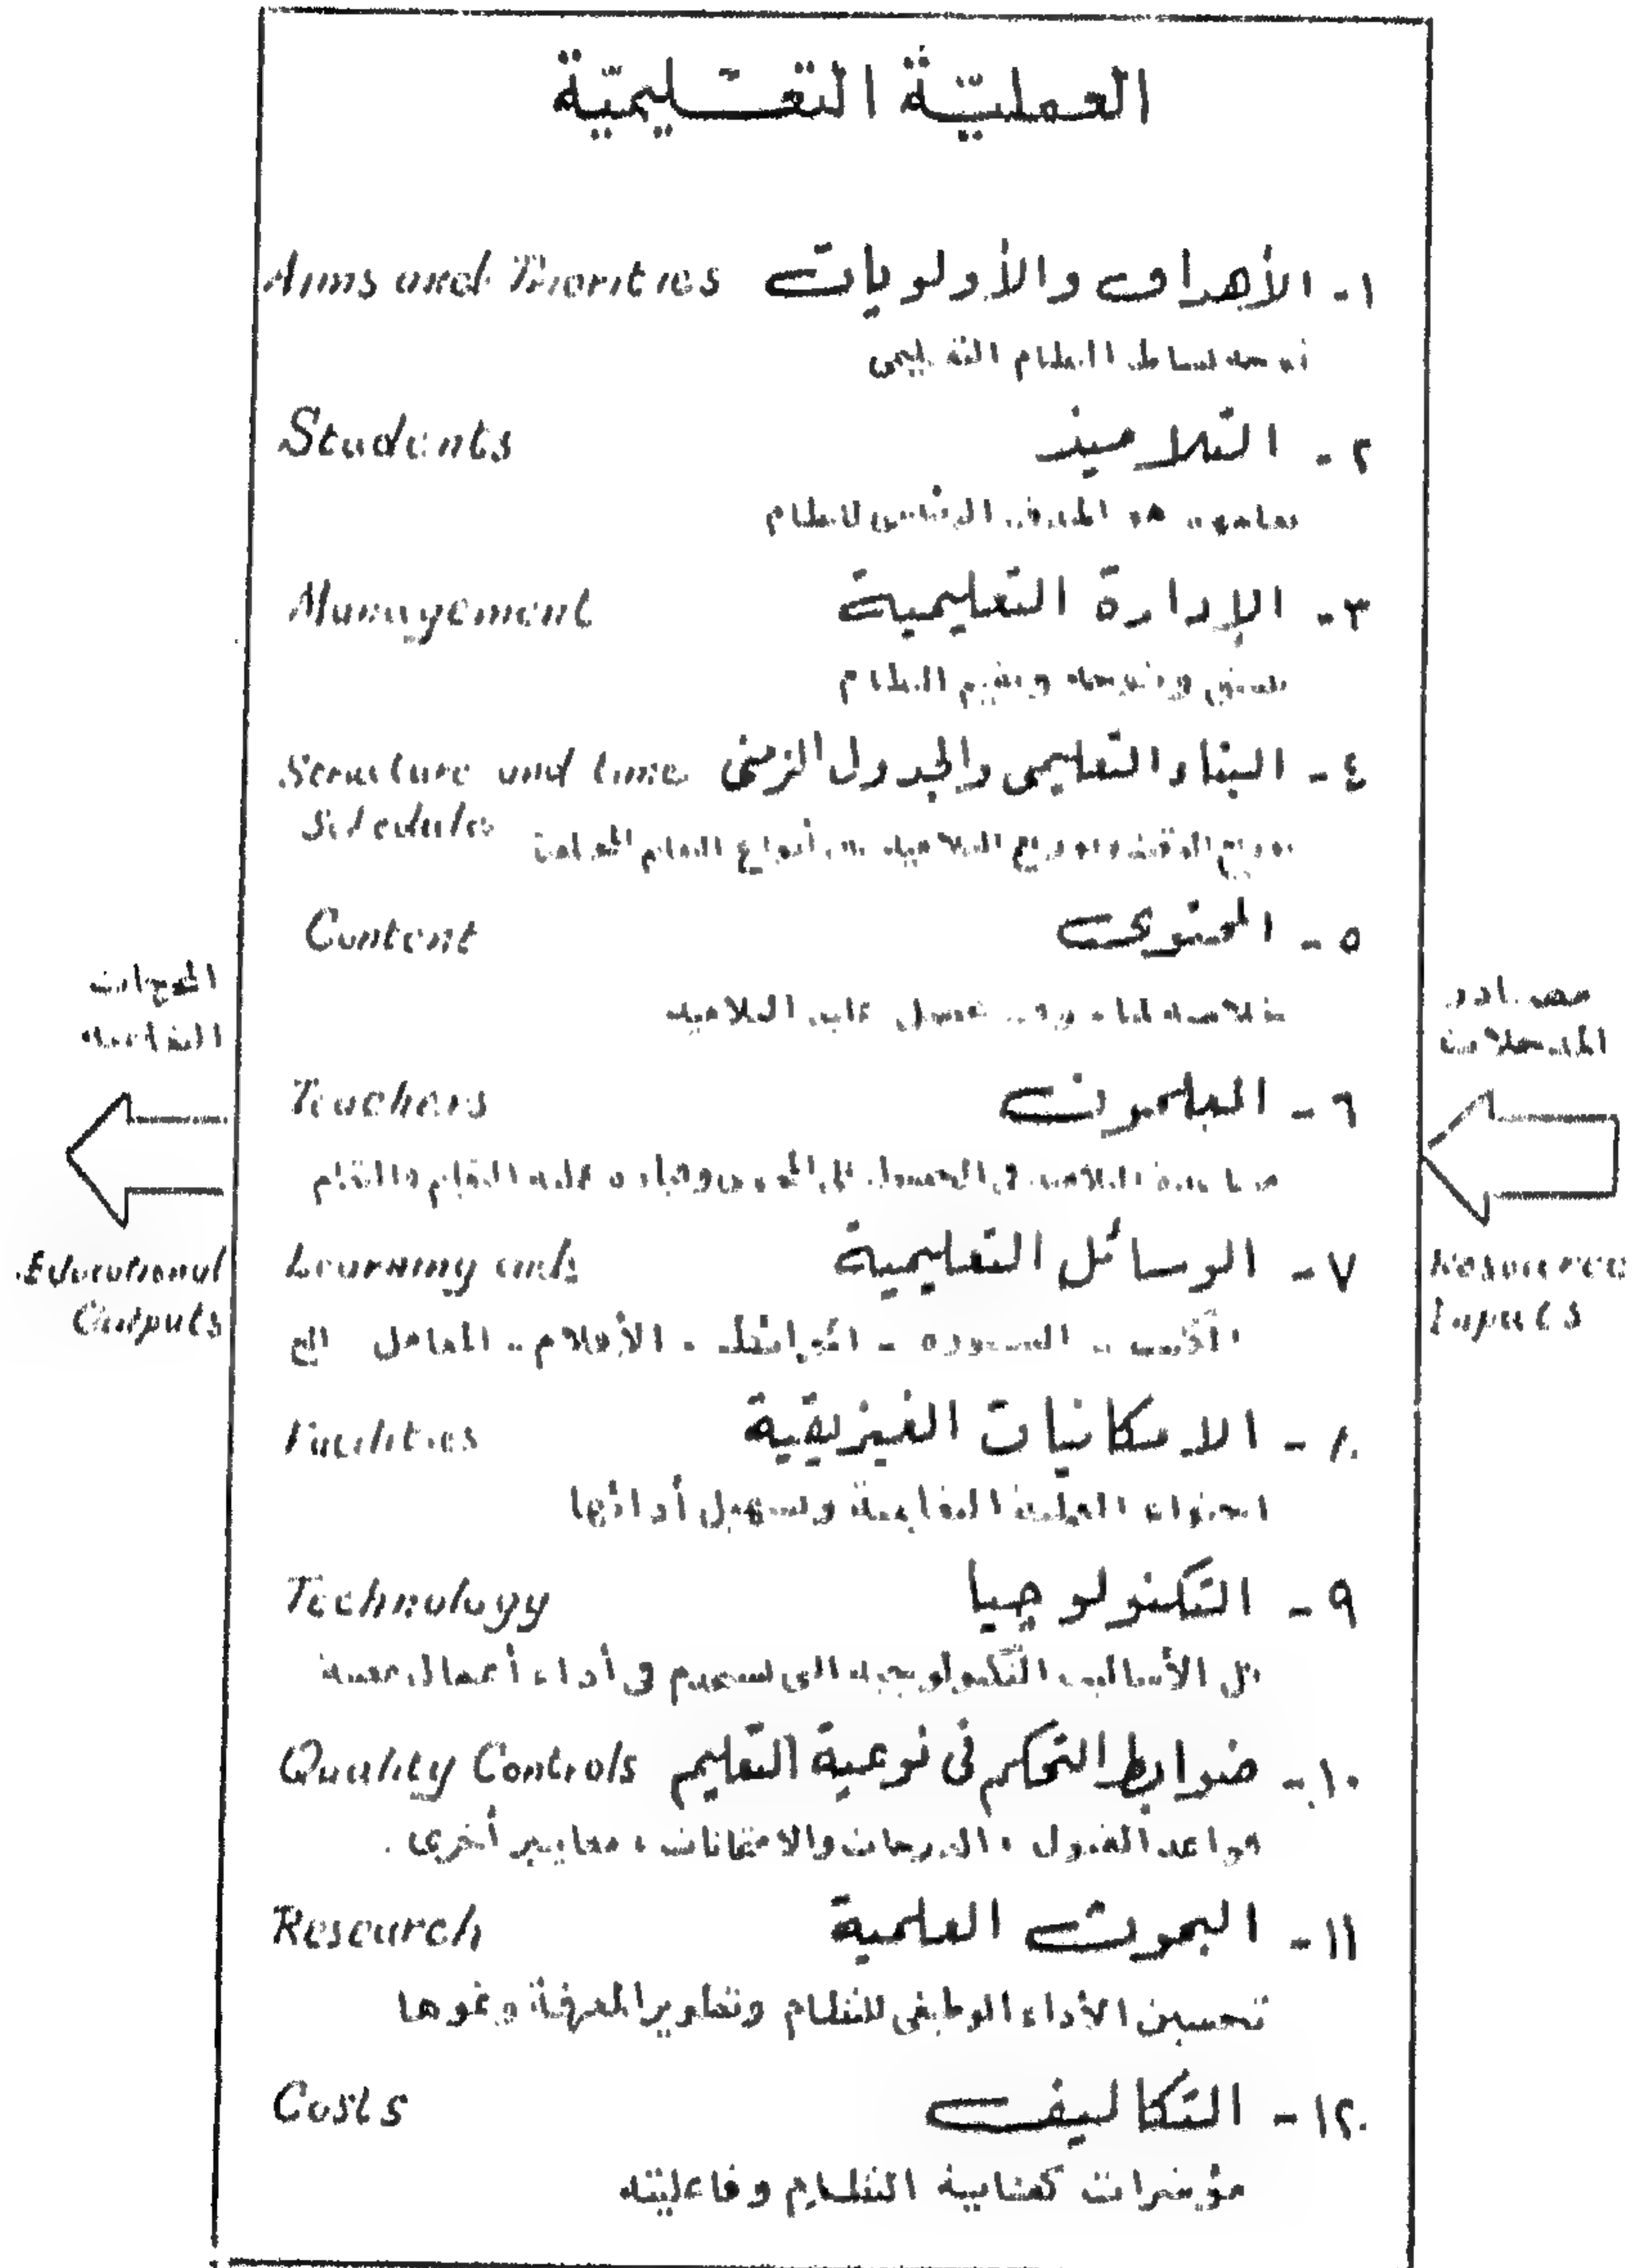 العملية التعليمية
١- الأهداف والأولويات Aims and Priorities
توجيه نشاط النظام التعليمى
٢- التلاميذ Students
تعليمهم هو الهدف الرئيسى للنظام
٣- الإدارة التعليمية Management
تنسيق وتوجيه وتقييم النظام
٤- البناء التعليمى والجدول الزمنى Structure and time
Schedules
توزيع الوقت وتوزيع التلاميذ أنواع التعليم المختلفة
٥- المحتوى Content
خلاصة عليه التلاميذ
مصادر
المدخلات
المخرجات
التعليمية
٦- المعلمون Teachers
مساعدة التلاميذ فى الحصول على المحتوى وقيادة عملية التعليم والتعلم
٧- الوسائل التعليمية Learning aids
Resource
Inputs
Educational
Outputs
الكتب - السبورة - الخرائط - الأفلام - المعامل الخ
٨- الامكانيات الفيزيقية Facilities
احتواء العملية التعليمية وتسهيل أدائها
٩- التكنولوجيا Technology
كل الأساليب التكنولوجية التى تستخدم فى أداء أعمال معينة
١٠- ضوابط التحكم فى نوعية التعليم Quality Controls
قواعد القبول ، الدرجات والامتحانات ، معايير أخرى .
١١- البحوث العلمية Research
تحسين الأداء الوظيفى للنظام وتطوير المعرفة ونموها
١٢- التكاليف Costs
مؤشرات كفاية النظام وفاعليته